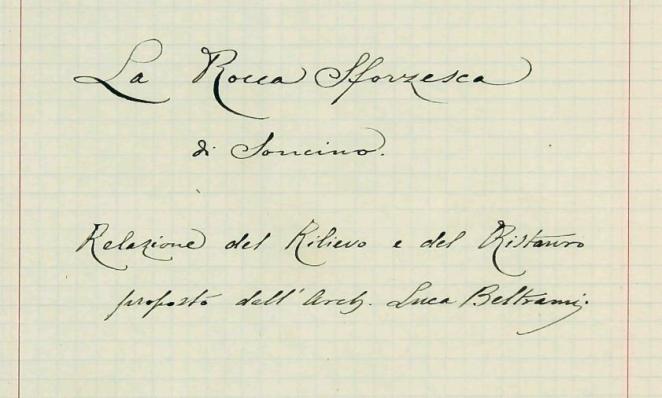 La Rocca Sforzesca
di Soncino.
Relazione del Rilievo e del Ristauro
proposto dall' Arch. Luca Beltrami.